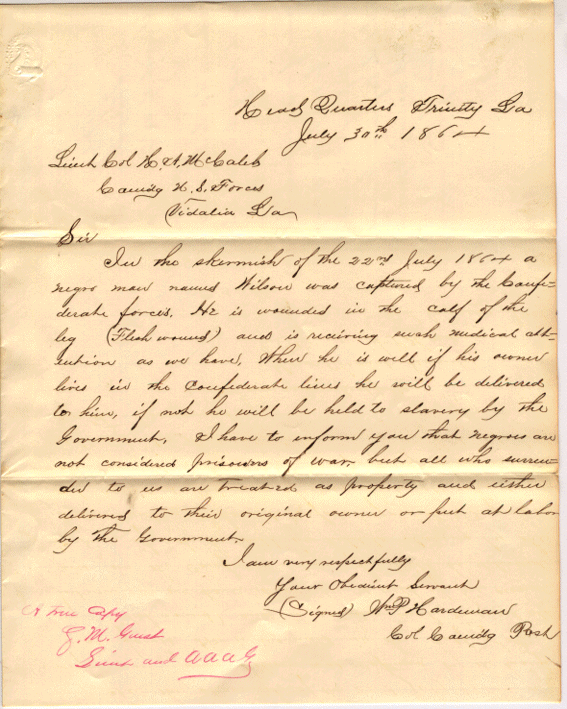 Head Quarters Trinity La
July 30th 1864
Lieut Col H. A. McCaleb
Comdg U. S. Forces
Vidalia La
Sir
In the skirmish of the 22nd July 1864 a
negro man named Wilson was captured by the Confe-
derate forces. He is wounded in the calf of the
leg (Flesh wound) and is reciving such medical att-
ention as we have, When he is well if his owner
lives in the Confederate lines he will be delivered
to him, if not he will be held to slavery by the
Government. I have to inform you that negroes are
not considered prisoners of war but all who surren-
der to us are treated as property and either
delivered to their original owner or put at labor
by the Government.
I am very respectfully
Your Obedient Servant
(Signed) Wm P Hardeman
Col Comdg Post
A true Copy
G. M. Guest
Lieut and A A A G